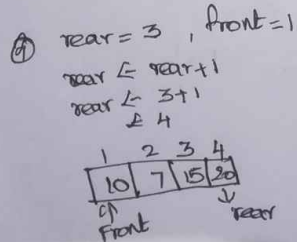 ④ rear = 3 , front = 1
rear ← rear + 1
rear ← 3 + 1
← 4
1 2 3 4
10 7 15 20
front rear